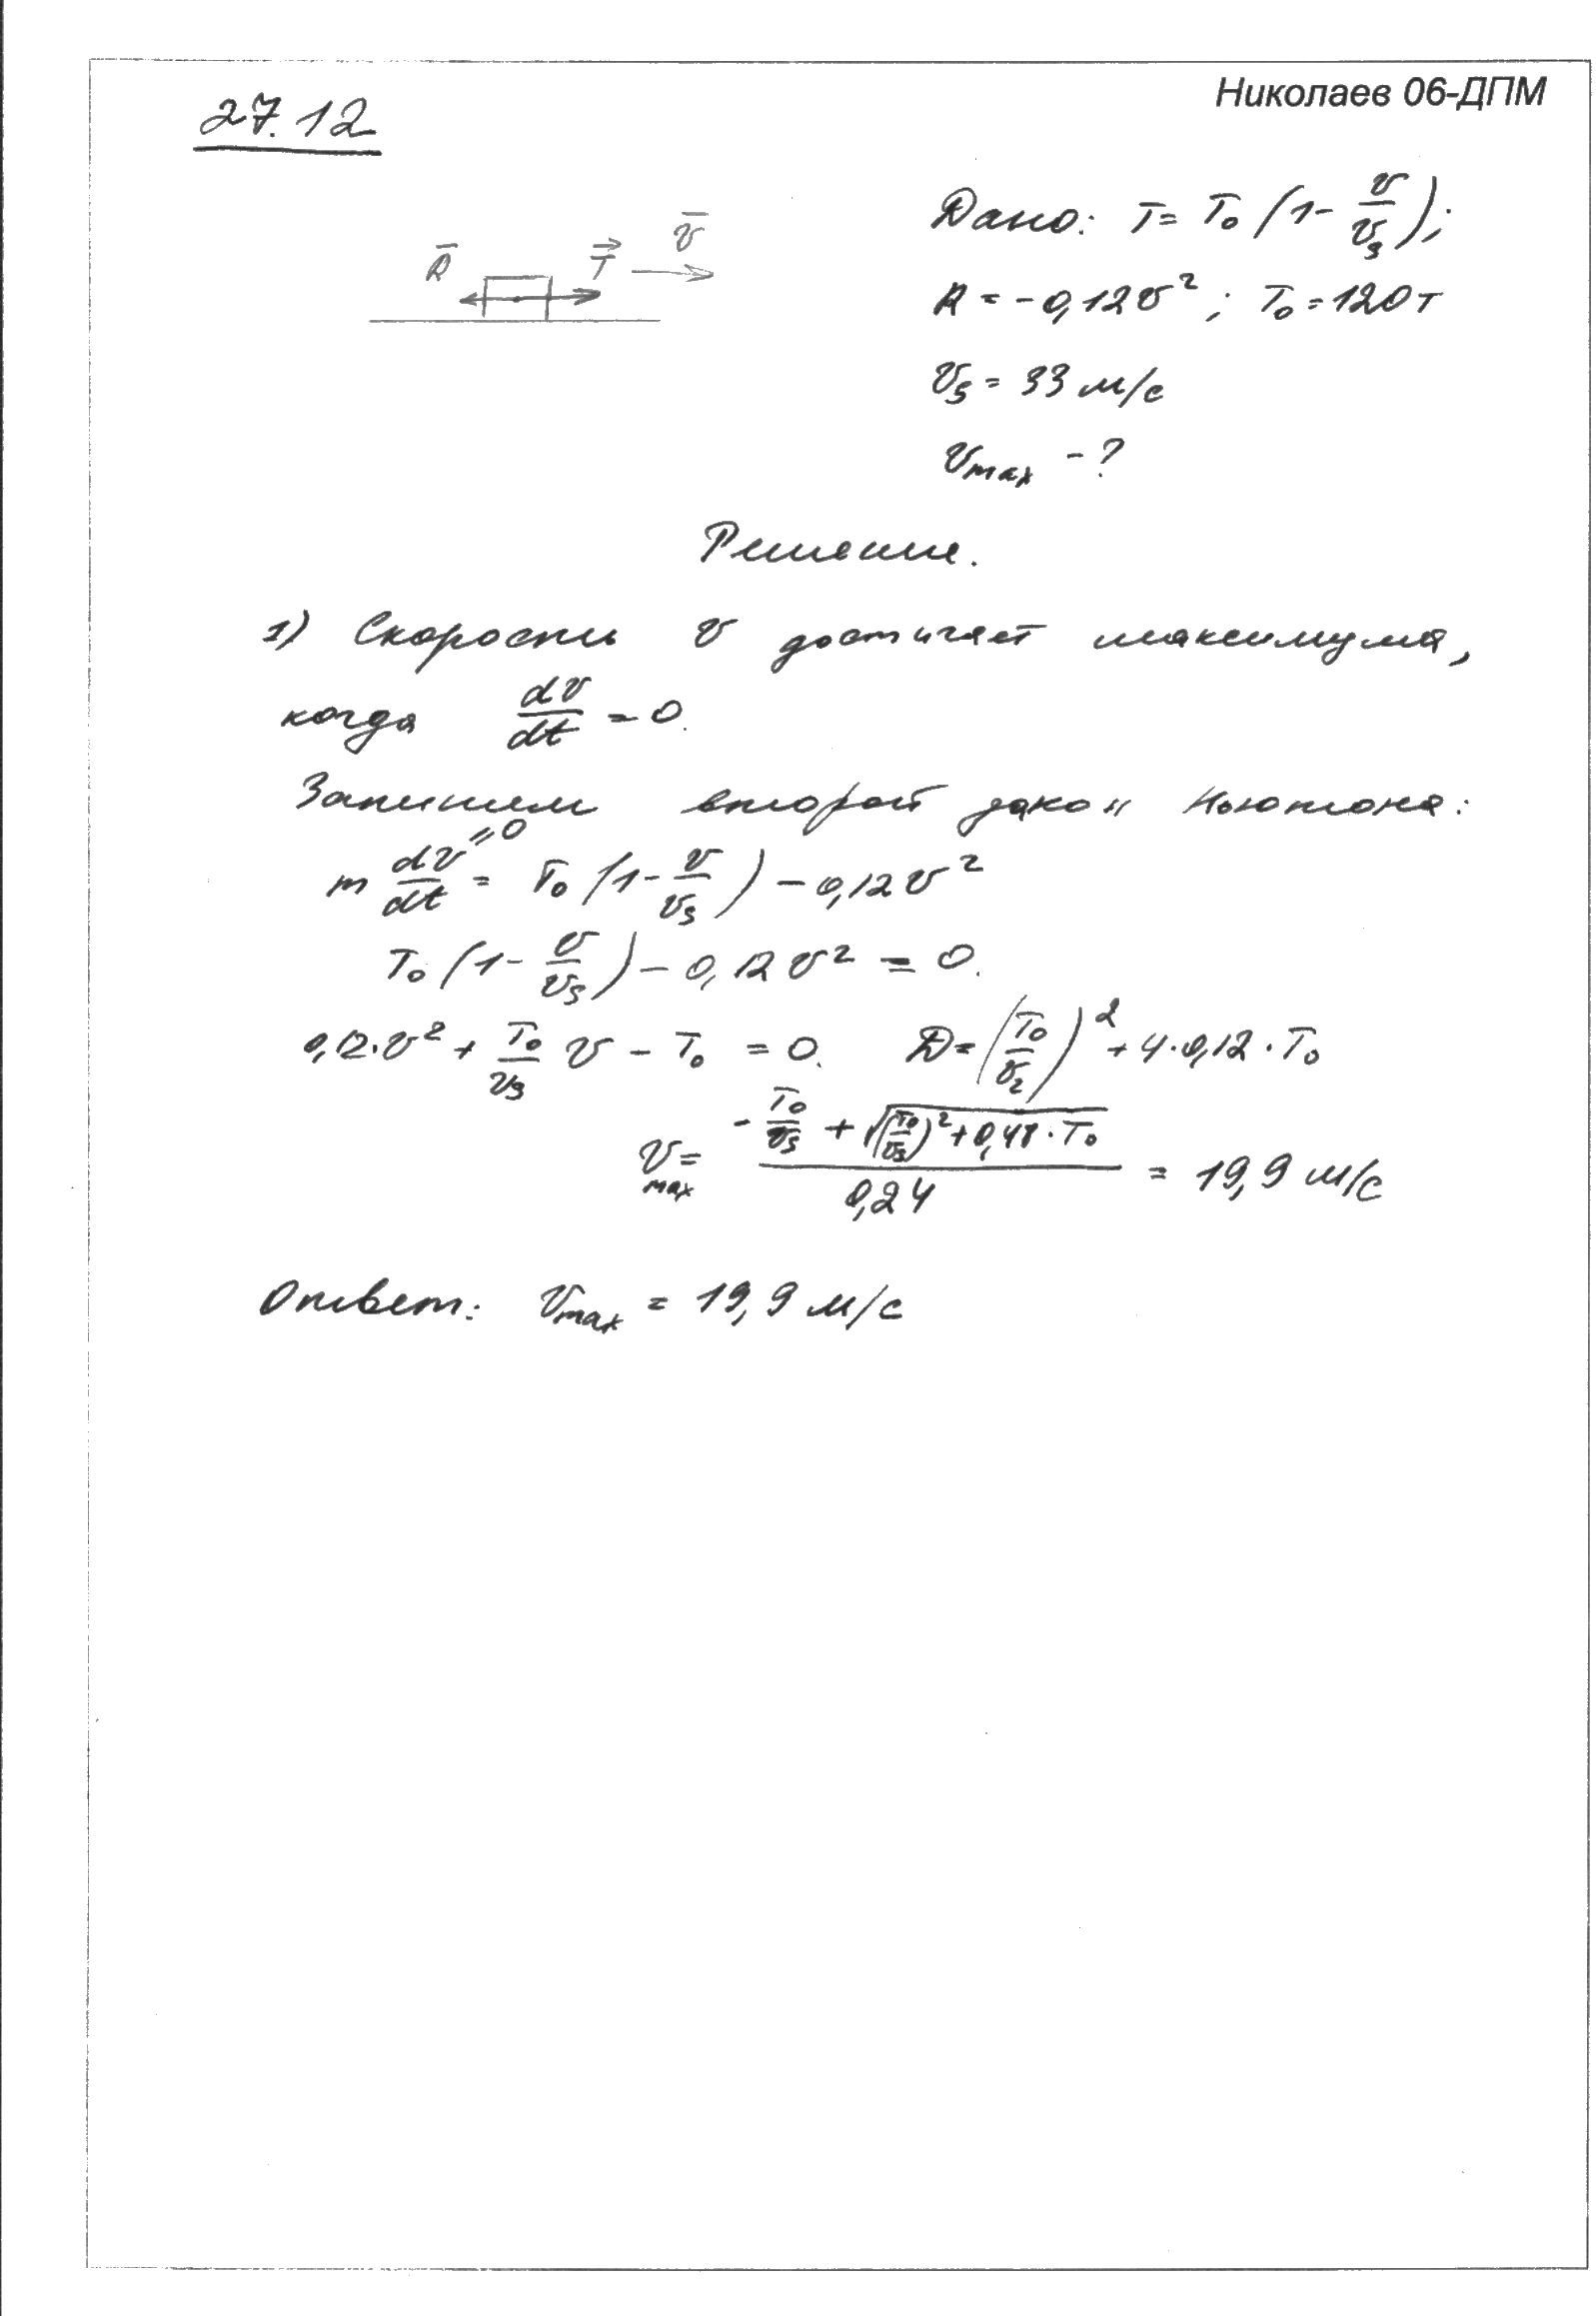 Николаев 06-ДПМ
27.12
R̅ T⃗ v̅
Дано: T = T₀ (1 - v/vₛ);
R = -0,12v²; T₀ = 120 т
vₛ = 33 м/с
vmax - ?
Решение.
1) Скорость v достигает максимума,
когда dv/dt = 0.
Запишем второй закон Ньютона:
m dv/dt = T₀ (1 - v/vₛ) - 0,12v²
=0
T₀ (1 - v/vₛ) - 0,12v² = 0.
0,12·v² + T₀/vₛ v - T₀ = 0. D = (T₀/v₂)² + 4·0,12·T₀
vmax = (-T₀/vₛ + √((T₀/vₛ)² + 0,48·T₀))/0,24 = 19,9 м/с
Ответ: vmax = 19,9 м/с